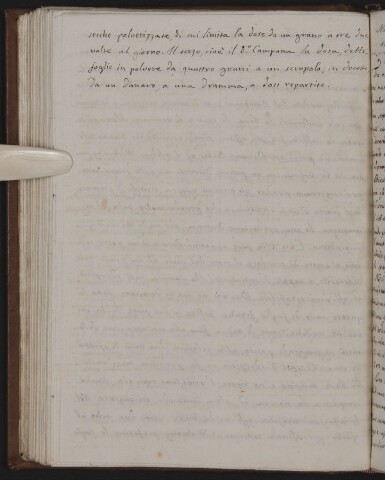 secche polverizzate, di cui limita la dose da un grano a tre due
volte al giorno. Il terzo, cioè il D.r Campana la dosa delle
foglie in polvere da quattro grani a un scrupolo, in
da un danaro a una dramma, a dosi repartite.